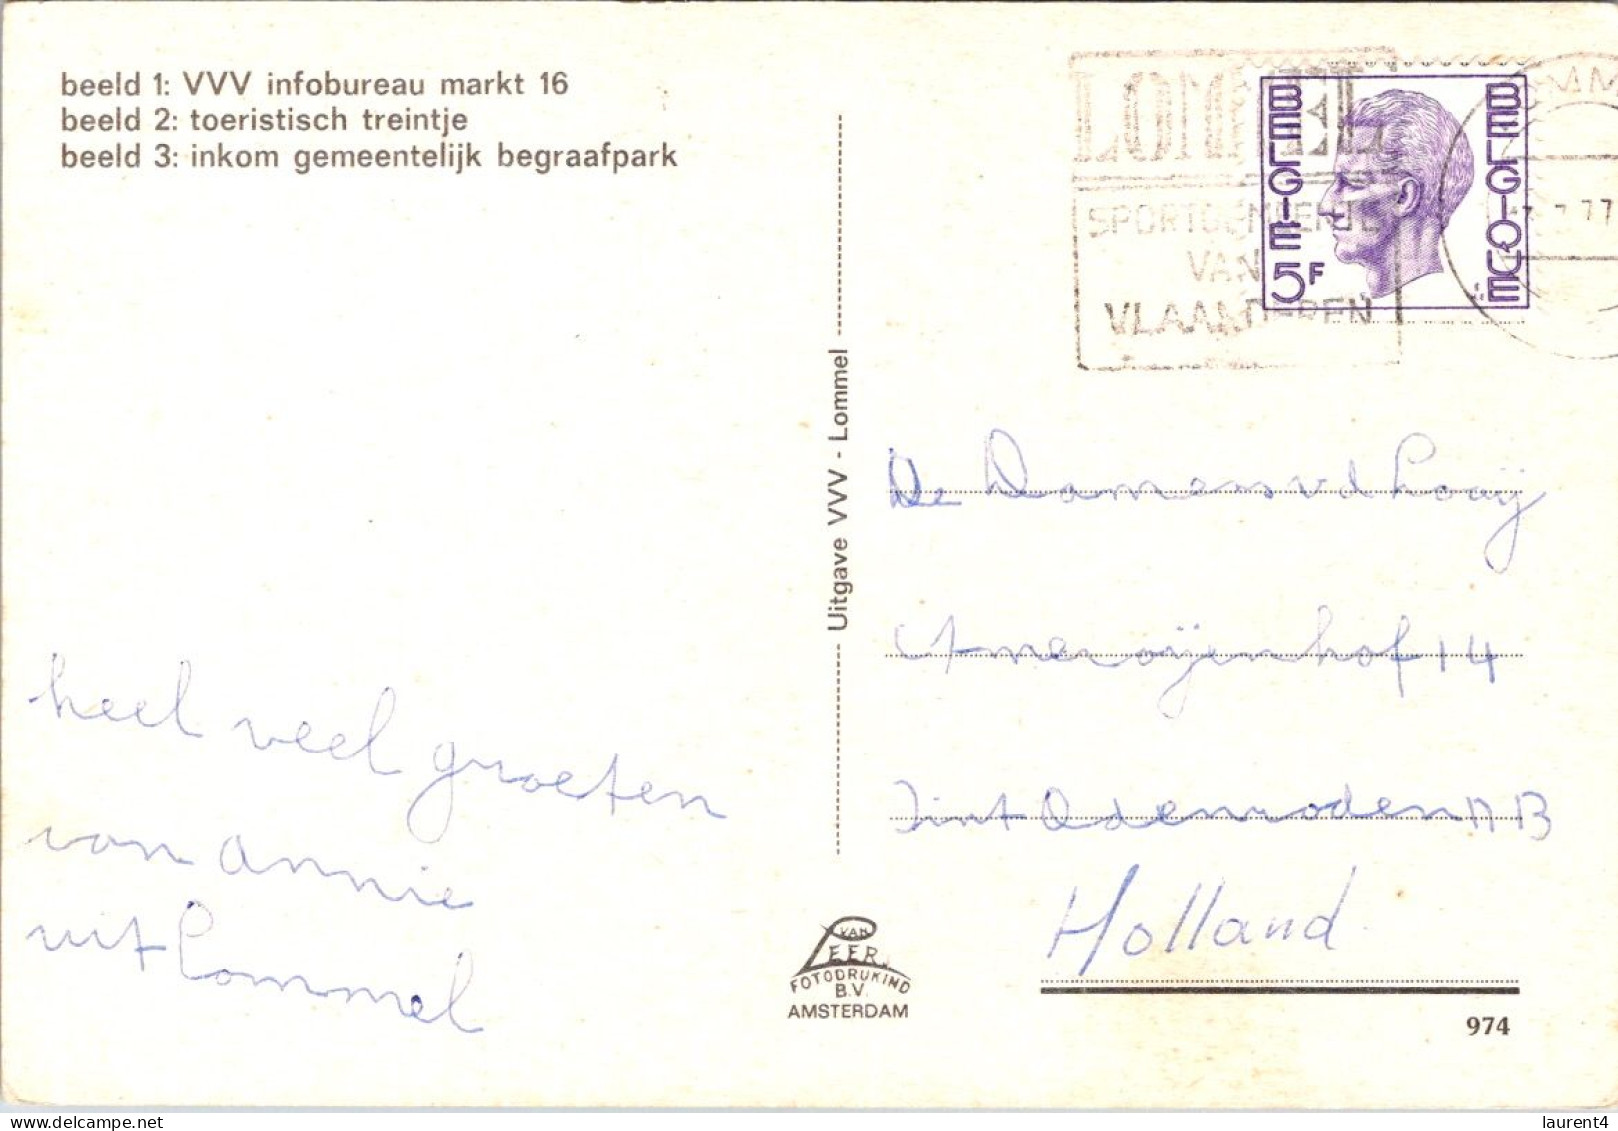 beeld 1: VVV infobureau markt 16
beeld 2: toeristisch treintje
beeld 3: inkom gemeentelijk begraafpark
LOMMEL
SPORTGEMEENTE
VAN
VLAANDEREN
BELGIE
5F
BELGIQUE
77
Uitgave VVV - Lommel
De Damens vd Looij
Ameroijenhof 14
Sint Odenroden NB
Holland
heel veel groeten
van annie
uit Lommel
VAN
LEER
FOTODRUKIND
B.V.
AMSTERDAM
974
delcampe.net
laurent4